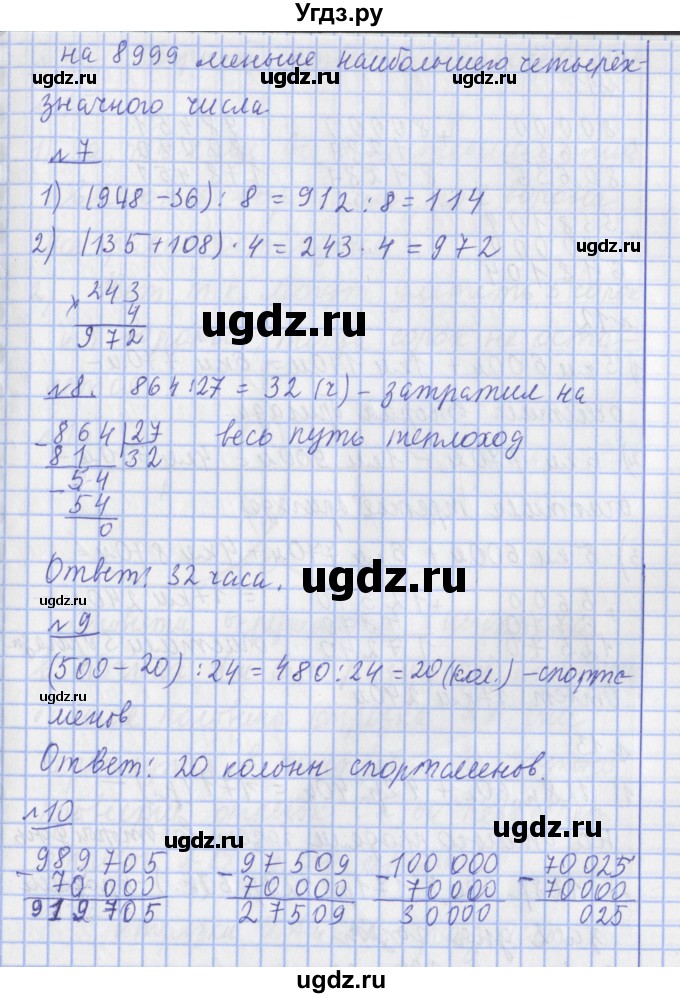 Угдз.ру
на 8999 меньше наибольшего четырёх-
ugdz.ru ugdz.ru
значного числа
№7
1) (948 - 36) : 8 = 912 : 8 = 114
2) (135 + 108) · 4 = 243 · 4 = 972
ugdz.ru
× 243
4
972
ugdz.ru
№8. 864 : 27 = 32 (ч) - затратил на
весь путь теплоход
- 864 | 27
81 32
- 54
54
0
Ответ: 32 часа.
ugdz.ru
ugdz.ru
№9
(500 - 20) : 24 = 480 : 24 = 20 (кол.) - спортс-
ugdz.ru
менов
Ответ: 20 колонн спортсменов.
№10
ugdz.ru
- 989705 - 97509 - 100 000 - 70 025
70 000 70 000 70000 70000
919705 27509 30000 025
ugdz.ru ugdz.ru
ugdz.ru